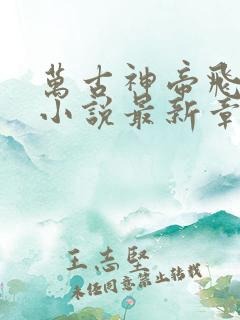 萬古神帝飛
小說最新章
王志堅
未經同意禁止轉載